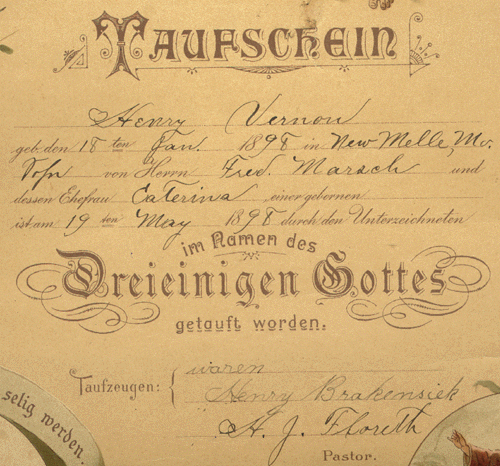 Taufschein
Henry Vernon
geb. den 18 ten Jan. 1898 in New Melle, Mo.
Sohn von Herrn Fred. Marsch und
dessen Ehefrau Caterina einer gebornen
ist am 19 ten May 1898 durch den Unterzeichneten
im Namen des
Dreieinigen Gottes
getauft worden.
waren
Taufzeugen: Henry Brakensiek
H. J. Floreth
Pastor.
selig werden.